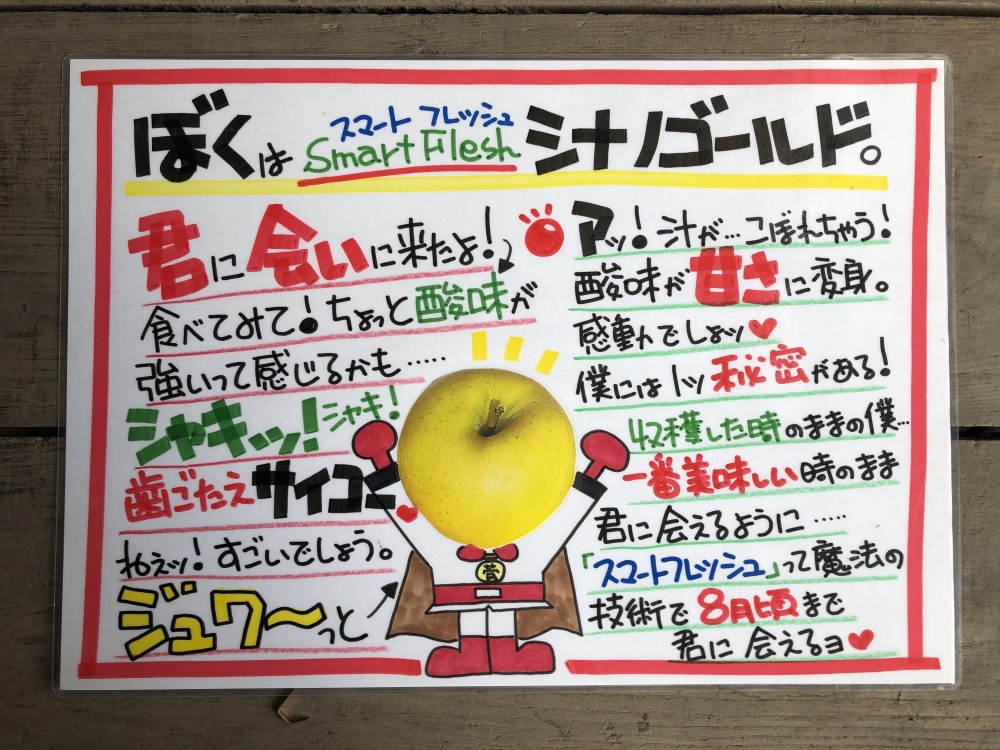 ぼくは スマート フレッシュ Smart Flesh シナノゴールド。
君に会いに来たよ!
食べてみて!ちょっと酸味が
強いって感じるかも……
シャキッ!シャキ!
歯ごたえサイコー
ねえッ!すごいでしょう。
ジュワ〜っと
アッ!汁が…こぼれちゃう!
酸味が甘さに変身。
感動んでしょッ
僕には1ツ秘密がある!
収穫した時のままの僕…
一番美味しい時のまま
君に会えるように……
「スマートフレッシュ」って魔法の
技術で8月頃まで
君に会えるヨ
菅